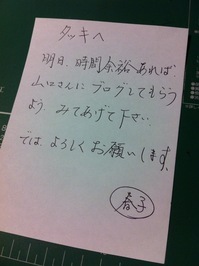 タッキへ
明日、時間余裕あれば
山口さんに ブログしてもらう
よう みてあげて下さい.
では、よろしくお願いします。
春子